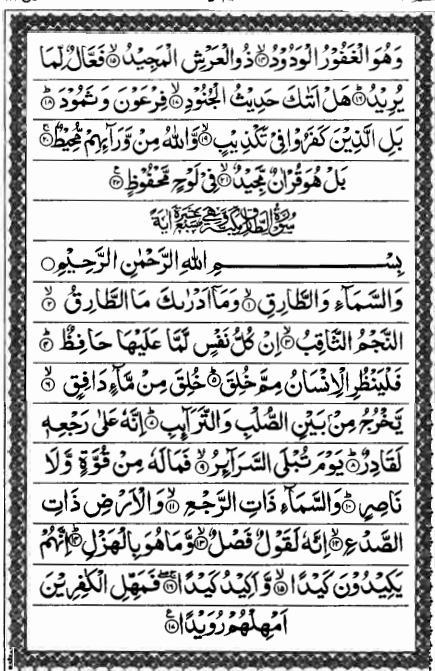 وَهُوَ الْغَفُوْرُ الْوَدُوْدُ ۙ۱۴ ذُو الْعَرْشِ الْمَجِيْدُ ۙ۱۵ فَعَّالٌ لِّمَا
يُرِيْدُ ؕ۱۶ هَلْ اَتٰىكَ حَدِيْثُ الْجُنُوْدِ ۙ۱۷ فِرْعَوْنَ وَ ثَمُوْدَ ؕ۱۸
بَلِ الَّذِيْنَ كَفَرُوْا فِيْ تَكْذِيْبٍ ۙ۱۹ وَّ اللّٰهُ مِنْ وَّرَآىِٕهِمْ مُّحِيْطٌ ۚ۲۰
بَلْ هُوَ قُرْاٰنٌ مَّجِيْدٌ ۙ۲۱ فِيْ لَوْحٍ مَّحْفُوْظٍ ۠۲۲
سُوْرَةُ الطَّارِقِ مَكِّيَّةٌ وَّهِيَ سَبْعَ عَشْرَةَ اٰيَةً
بِسْمِ اللّٰهِ الرَّحْمٰنِ الرَّحِيْمِ ○
وَالسَّمَآءِ وَالطَّارِقِ ۙ۱ وَمَاۤ اَدْرٰىكَ مَا الطَّارِقُ ۙ۲
النَّجْمُ الثَّاقِبُ ۙ۳ اِنْ كُلُّ نَفْسٍ لَّمَّا عَلَيْهَا حَافِظٌ ؕ۴
فَلْيَنْظُرِ الْاِنْسَانُ مِمَّ خُلِقَ ؕ۵ خُلِقَ مِنْ مَّآءٍ دَافِقٍ ۙ۶
يَّخْرُجُ مِنْۢ بَيْنِ الصُّلْبِ وَالتَّرَآىِٕبِ ؕ۷ اِنَّهٗ عَلٰى رَجْعِهٖ
لَقَادِرٌ ؕ۸ يَوْمَ تُبْلَى السَّرَآىِٕرُ ۙ۹ فَمَا لَهٗ مِنْ قُوَّةٍ وَّلَا
نَاصِرٍ ؕ۱۰ وَالسَّمَآءِ ذَاتِ الرَّجْعِ ۙ۱۱ وَالْاَرْضِ ذَاتِ
الصَّدْعِ ۙ۱۲ اِنَّهٗ لَقَوْلٌ فَصْلٌ ۙ۱۳ وَّمَا هُوَ بِالْهَزْلِ ؕ۱۴ اِنَّهُمْ
يَكِيْدُوْنَ كَيْدًا ۙ۱۵ وَّاَكِيْدُ كَيْدًا ۚۖ۱۶ فَمَهِّلِ الْكٰفِرِيْنَ
اَمْهِلْهُمْ رُوَيْدًا ۠۱۷